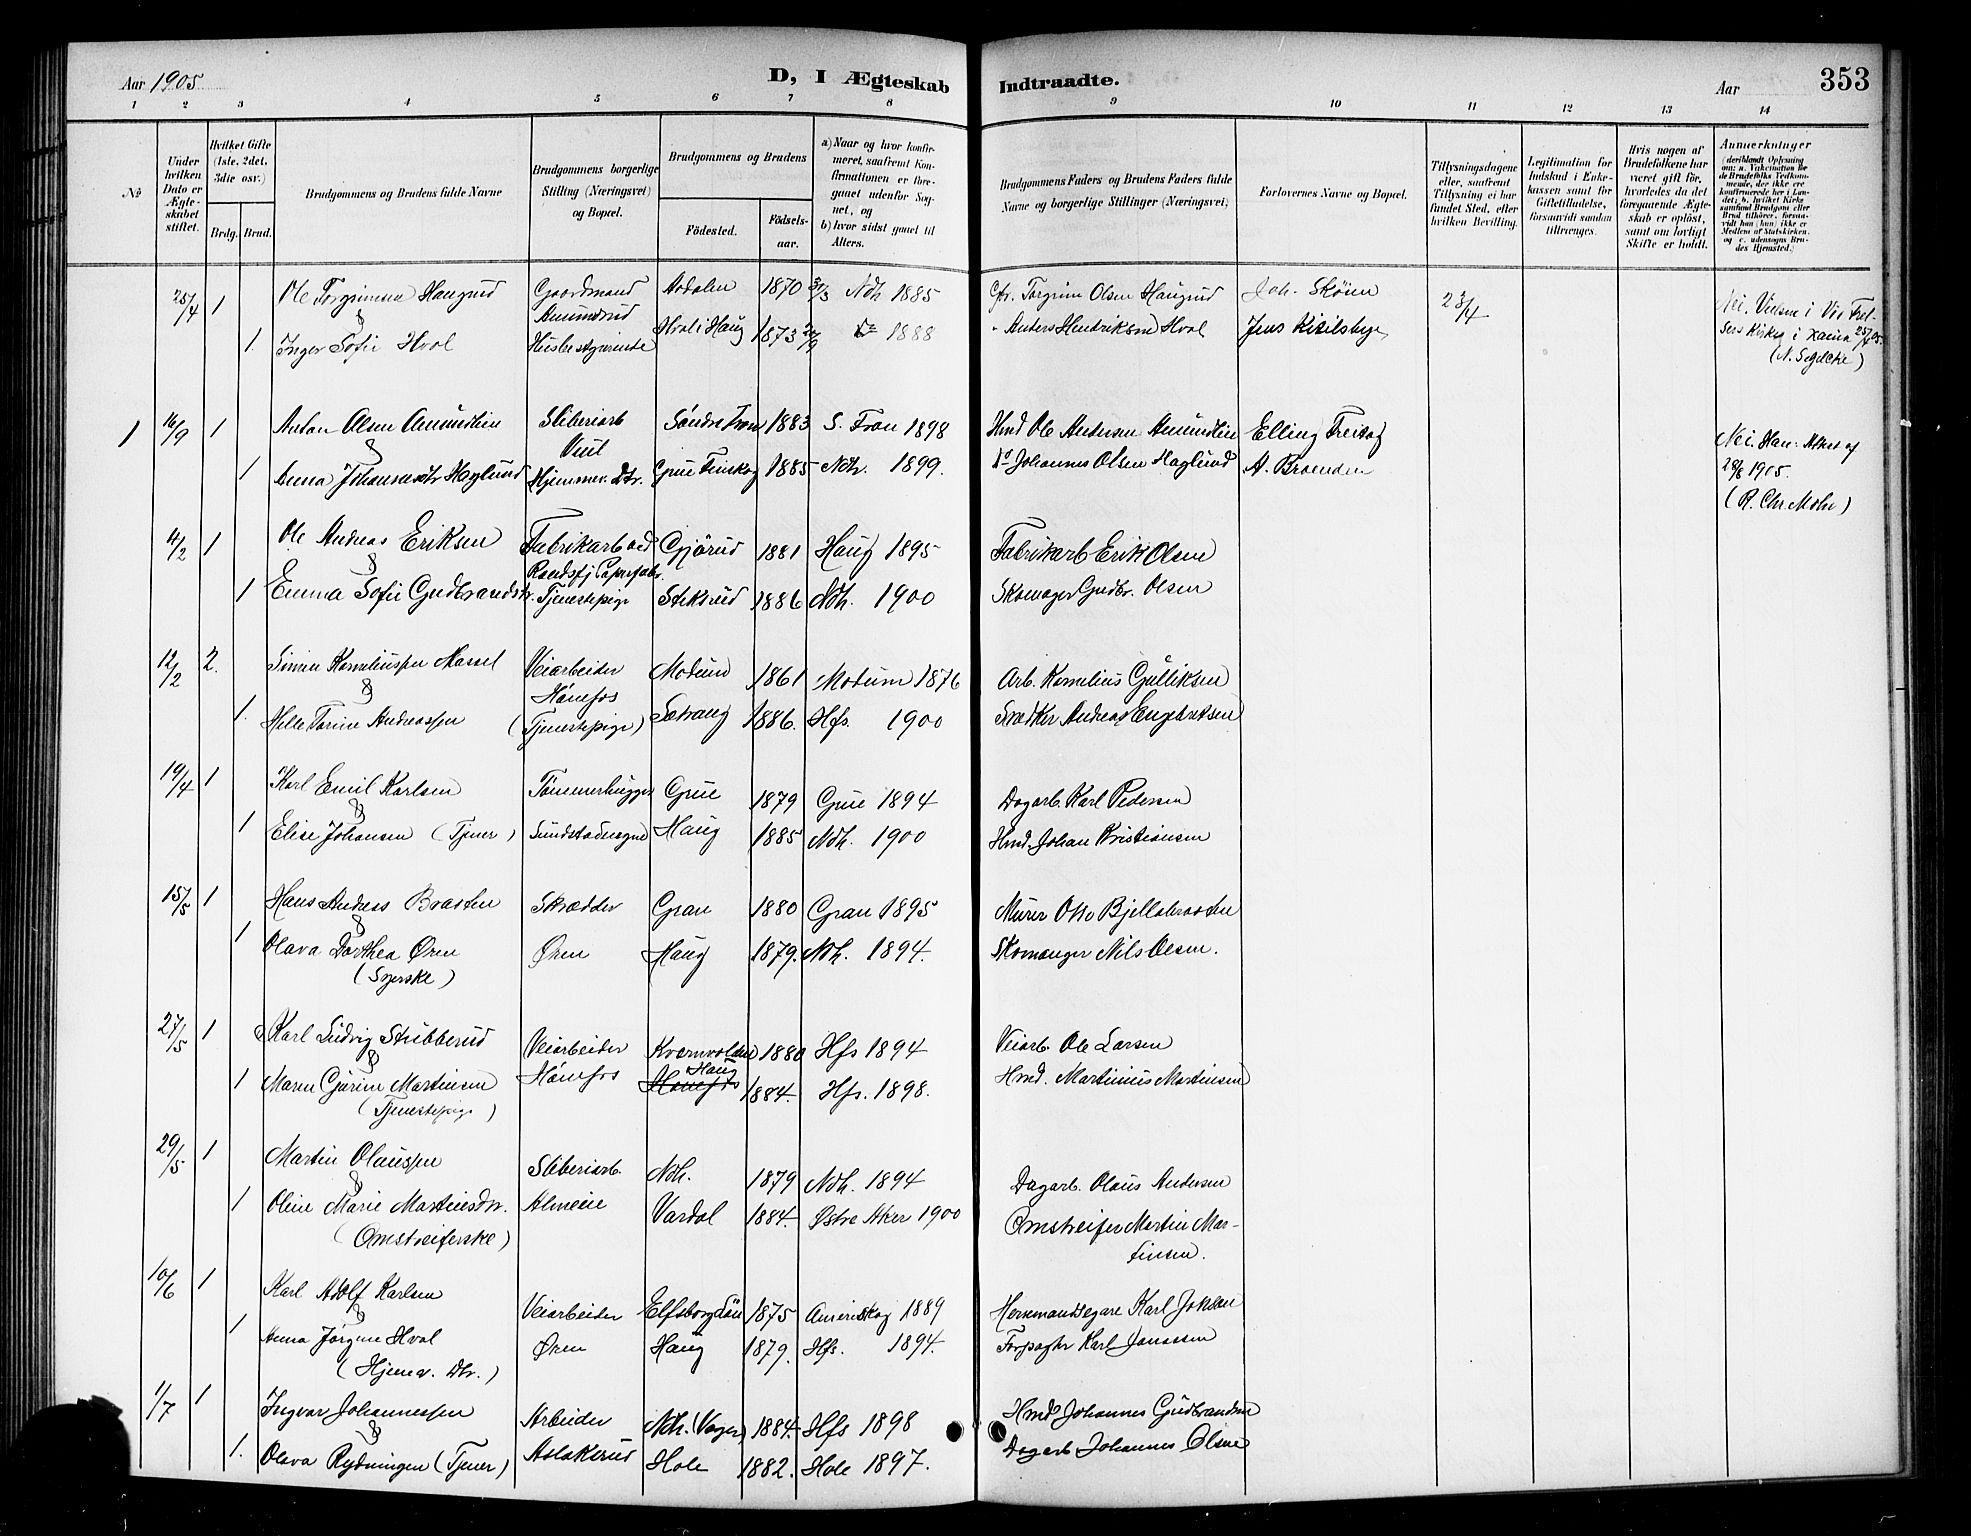 Aar 1905
D, I Ægteskab Indtraadte.
Aar
353
1 2 3 4 5 6 7 8 9 10 11 12 13 14
No
Under hvilken Dato er Ægteskabet stiftet.
Hvilket Gifte (1ste, 2det, 3die osv.)
Brdg. Brud.
Brudgommens og Brudens fulde Navne
Brudgommens borgerlige Stilling (Næringsvei) og Bopæl.
Brudgommens og Brudens
Fødested.
Fødselsaar.
a) Naar og hvor konfirmeret, saafremt Konfirmationen er foregaaet udenfor Sognet, og
b) hvor sidst gaaet til Alters.
Brudgommens Faders og Brudens Faders fulde Navne og borgerlige Stillinger (Næringsvei)
Forlovernes Navne og Bopæl.
Tillysningsdagene eller, saafremt Tillysning ei har fundet Sted, efter hvilken Bevilling.
Legitimation for Indskud i Enkekassen samt for Giftetilladelse, forsaavidt saadan tiltrænges.
Hvis nogen af Brudefolkene har været gift før, hvorledes da det foregaaende Ægteskab er opløst, samt om lovligt Skifte er holdt.
Anmærkninger
25/4 1 Ole Torgrimsen Haugrud Gaardmand Aadalen 1870 Ndh 1885 Torgrim Olsen Haugrud Joh. Skøien 23/4
1. Inger Sofie Hval Husbestyrerinde Hval i Haug 1873 1888 Anders Hendriksen Hval Jens
(N. Gjelcke)
1 16/9 1 Anton Olsen Amundlien Sliberiarb Søndre Fron 1883 S. Fron 1898 Hmd Ole Andersen Amundlien Elling Freitag
Viul
1 Anna Johannesdtr Haglund Hjemmev. Dtr. Grue Finskog 1885 Ndh. 1899. Do Johannes Olsen Haglund A. Braenden
28/8 1905.
(R. Chr. Mohr)
4/2 1 Ole Andreas Eriksen Fabrikarb ved Gjørud 1881 Haug 1895 Fabrikarb Erik Olsen
Randsfj Papirfabr.
1 Emma Sofie Gudbrandsdtr. Tjenestepige Stiksrud 1886 Ndh. 1900 Skomager Gudbr. Olsen
12/2 2. Simen Korneliussen Veiarbeider Modum 1861 Modum 1876 Arb. Kornelius Gulliksen
Hønefos
1. Andreassen (Tjenestepige) Sætrang 1886. Hfs. 1900 Andreas Engebretsen
19/4 1 Karl Emil Karlsen Tømmerhugger Grue 1879 Grue 1894 Dagarb. Karl Pedersen
1 Elise Johansen (Tjener) Haug 1885 Ndh. 1900 Hmd. Johan Kristiansen
15/5 1 Hans Andreas Braaten Skrædder Gran 1880 Gran 1895 Murer Otto Bjellabraaten
1 Olava Dorthea Øren Øren Haug 1879. Ndh. 1894. Skomager Nils Olsen.
(Syerske)
27/5 1 Karl Ludvig Stubberud Veiarbeider Kværnvolden 1880 Hfs 1894 Veiarb. Ole Larsen
Hønefos Haug
1 Maren Gurine Martinsen Hønefos 1884. Hfs. 1898. Hmd. Martinius Martinsen
(Tjenestepige)
29/5 1 Martin Olaussen Sliberiarb. Ndh. 1879 Ndh. 1894 Dagarb. Olaus Andersen
1 Oline Marie Martinsdtr. Almeie Vardal 1884. Østre Aker 1900 Omstreifer Martin Mar-
(Omstreiferske) tinsen.
10/6 1 Karl Adolf Karlsen Veiarbeider Elfsborgslän 1875 Åmerskog 1889 Hemmansegare Karl Jonsson
1 Anna Jørgine Hval Øren Haug 1879. Hfs. 1894. Forpagter Karl Janssen
(Hjemv. Dtr.)
1/7 1 Ingvar Johannessen Arbeider Ndh. (Vager) 1884 Hfs 1898 Hmd Johannes Gudbrandsen
1. Olava Rydningen (Tjener) Aslaksrud Hole 1882. Hole 1897. Dagarb Johannes Olsen